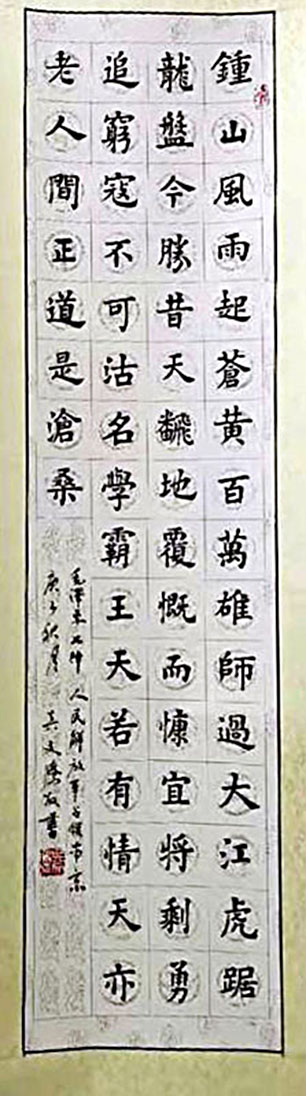 鍾山風雨起蒼黃百萬雄師過大江虎踞
龍盤今勝昔天飜地覆慨而慷宜將剩勇
追窮寇不可沽名學霸王天若有情天亦
老人間正道是滄桑
毛澤東七律 人民解放軍占領南京
庚子秋月 文 敬書